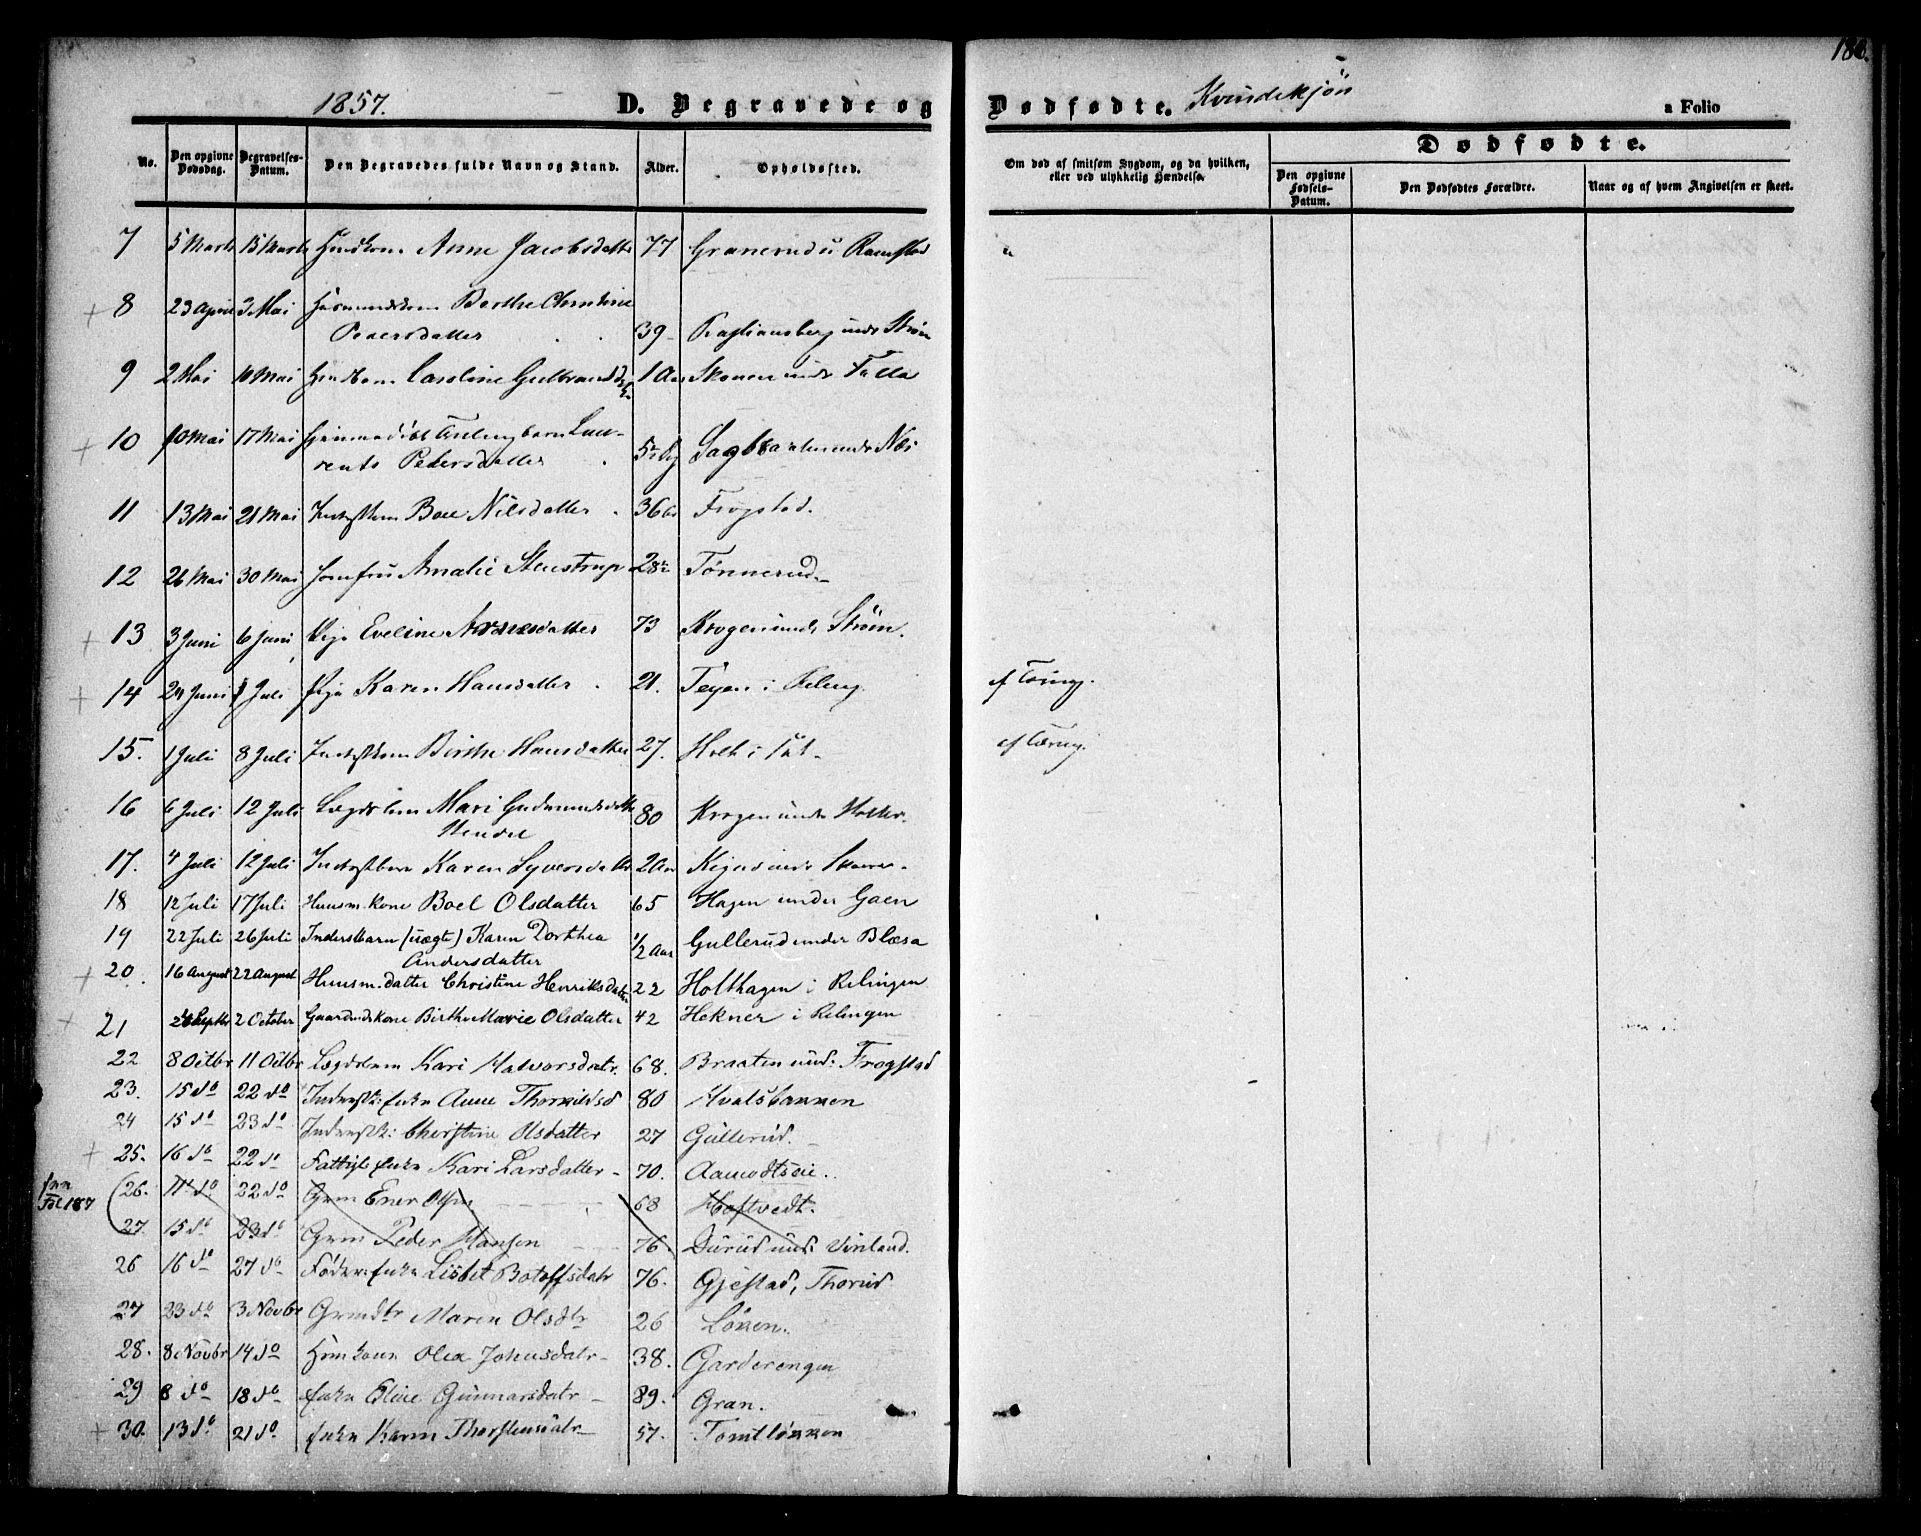 1857.
D. Begravede og Dødfødte. Kvindekjøn
a Folio
No. Den opgivne Dødsdag. Begravelses-Datum. Den Begravedes fulde Navn og Stand. Alder. Opholdssted. Om død af smitsom Sygdom, og da hvilken, eller ved ulykkelig Hændelse.
Dødfødte.
Den opgivne Fødsels-Datum. Den Dødfødtes Forældre. Naar og af hvem Angivelsen er skeet.
7 5 Marts 15 Marts Anne Jacobsdatter 77 Granerud u Ramstad
8 23 April 3 Mai Berthe Christine
Pedersdatter 39 under Strøm
9 2 Mai 10 Mai Caroline Gulbrandsd 1 Aar Skonen under Falla
10 10 Mai 17 Mai Lau-
rents Pedersdatter under Næs
11 13 Mai 21 Mai Boel Nilsdatter 36 Frogstad.
12 26 Mai 30 Mai Jomfru Amalie Stenstrup 28 Tönnerud
13 3 Juni 6 Juni Pige Eveline Arnesdatter 73 Krogen under Strøm.
14 24 Juni Juli Pige Karen Hansdatter 21. i Reling. af Tæring.
15. 1 Juli 8 Juli Birthe Hansdatter 27. Holt i af Tæring.
16 6 Juli 12 Juli Lægdslem Mari Gudmundsdatter 80 Krogen under Holter.
17. 4 Juli 12 Juli Karen Syversdatter 2 Aar
18 12 Juli 17 Juli Huusm. Kone Boel Olsdatter 65 Hagen under Gaen
19 22 Juli 26 Juli Inderstbarn (uægte) Karen Dorthea
Andersdatter 1/2 Aar Gullerud under Blæsa
20. 16 August 22 August Huusm. datter Christine Henriksdatter 22 Holthagen i Relingen
21 26 Septbr 2 October Gaardmdskone Birthe Marie Olsdatter 42 Hekner i Relingen
22 8 Octbr 11 Octbr Lægdslem Kari Halvorsdatr. 68. Braaten und: Frogstad
23. 15 do 22 do Inderstk: Enke Anne Thorkildsd 80 Hvalsbakken
24 15 do 23 do Inderstk: Cherstine Olsdatter 27 Gullerud.
25. 16 do 22 do Fattigl. Enke Kari Larsdatter 70. Aamodtseie.
Fol 187
(26. 11 do 22 do Grm Ener Olsen 68 Hoftvedt.
27. 15 do 23 do Grm Peder Hansen 76. Durud und: Vinland.
26 16 do 27 do Føder: Enke Lisbet Botolfsdatr 76. Gjestad, Thorud
27 23 do 3 Novbr Grmdtr Maren Olsdtr 26 Löken.
28. 8 Novbr 14 do Hsmkone Olea Johnsdatr 38. Garderengen
29 8 do 18 do Enke Eline Gunnarsdatr 89. Gran.
30. 13 do 21 do Enke Karen Thorstensdatr 57. Tomtløkken